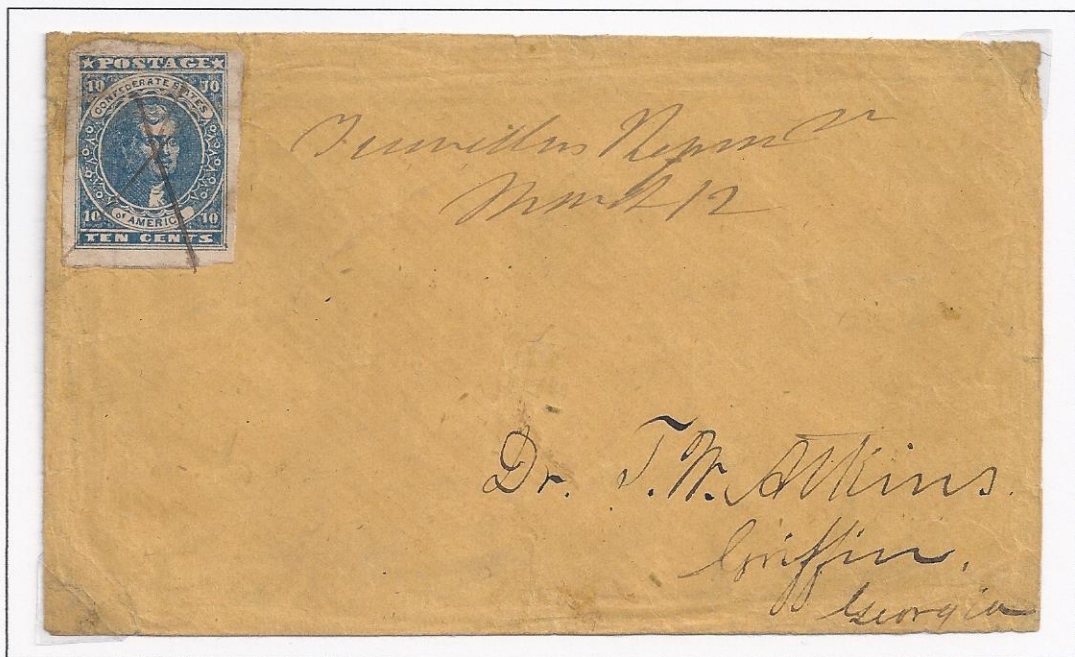 ★POSTAGE★
10 10
CONFEDERATE STATES
10 10
OF AMERICA
TEN CENTS
12
Dr. T. W. Atkins.
Griffin,
Georgia